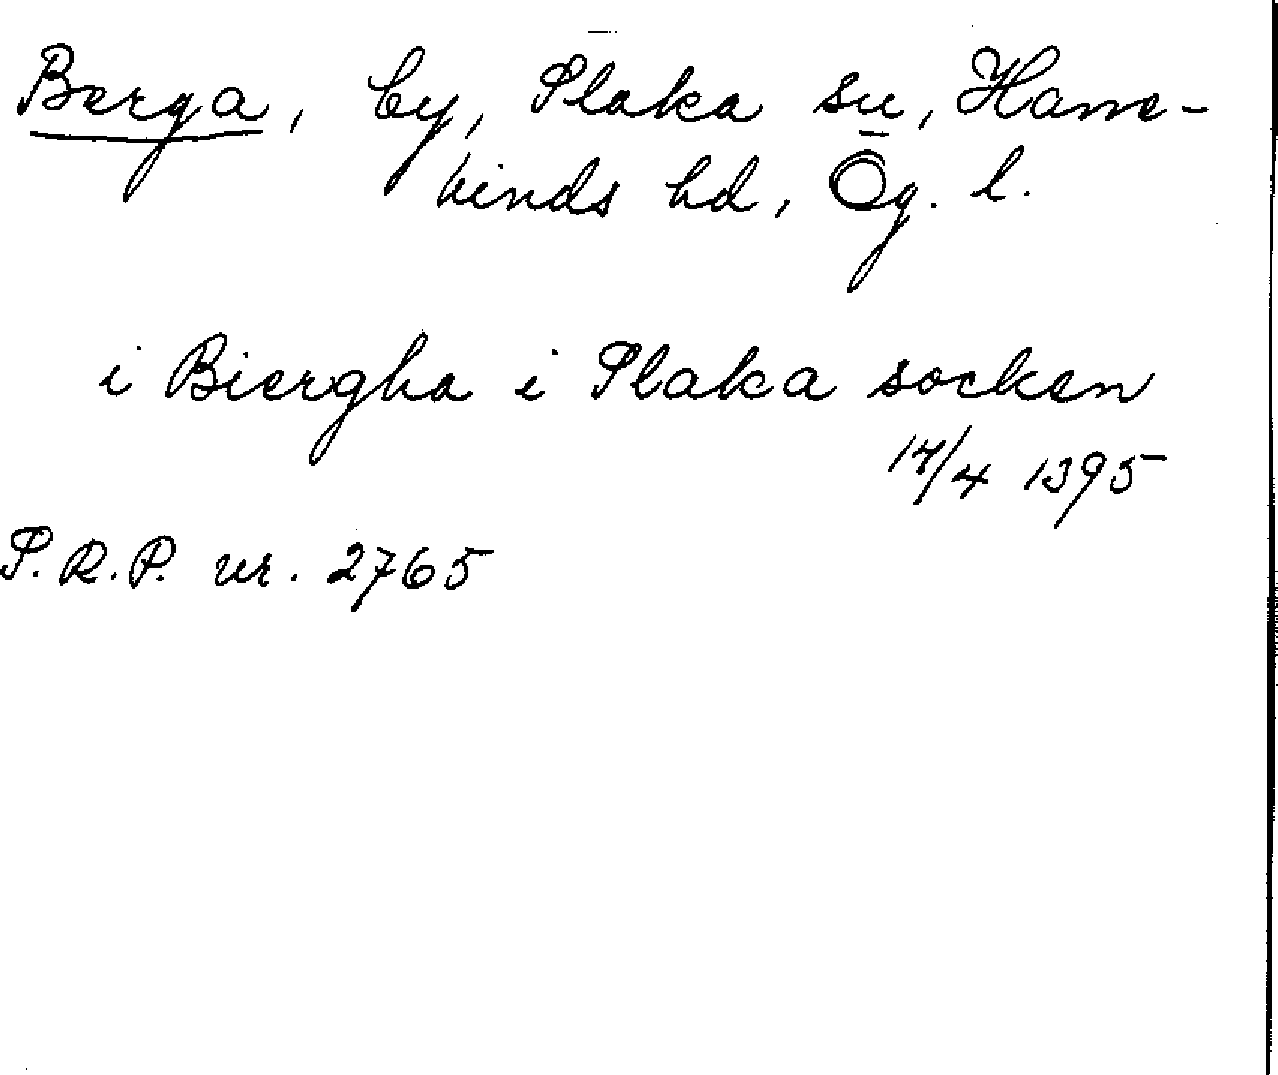 Berga, by, Slaka sn, Hane-
kinds hd, Ög. l.
i Biergha i Slaka socken
14/4 1395
S.R.P. nr. 2765